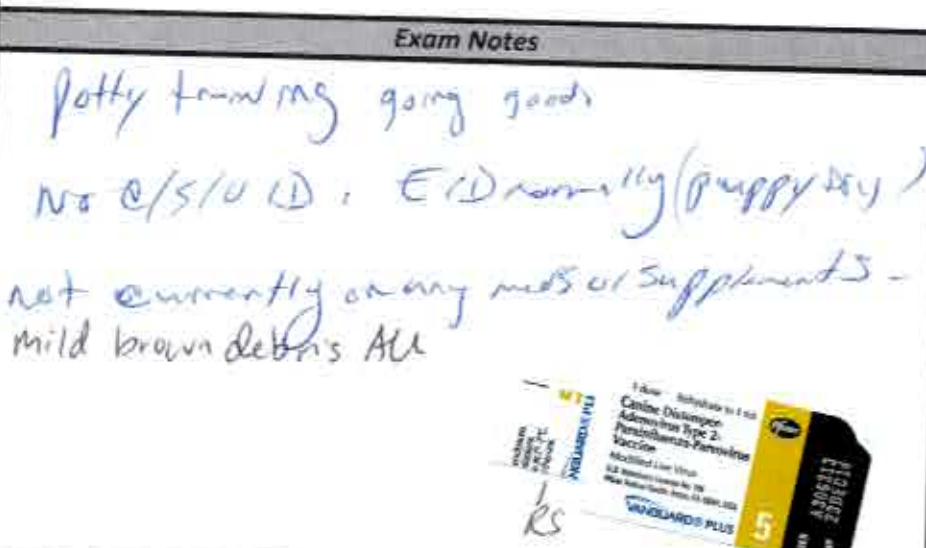 Exam Notes
Potty training going good.
No C/S/V/D. E/D normally (puppy dry)
not currently on any meds or supplements -
mild brown debris AU
1 dose Rehydrate to 1 mL
Canine Distemper-
Adenovirus Type 2-
Parainfluenza-Parvovirus
Vaccine
Modified Live Virus
Pfizer
VANGUARD® PLUS
5
RS